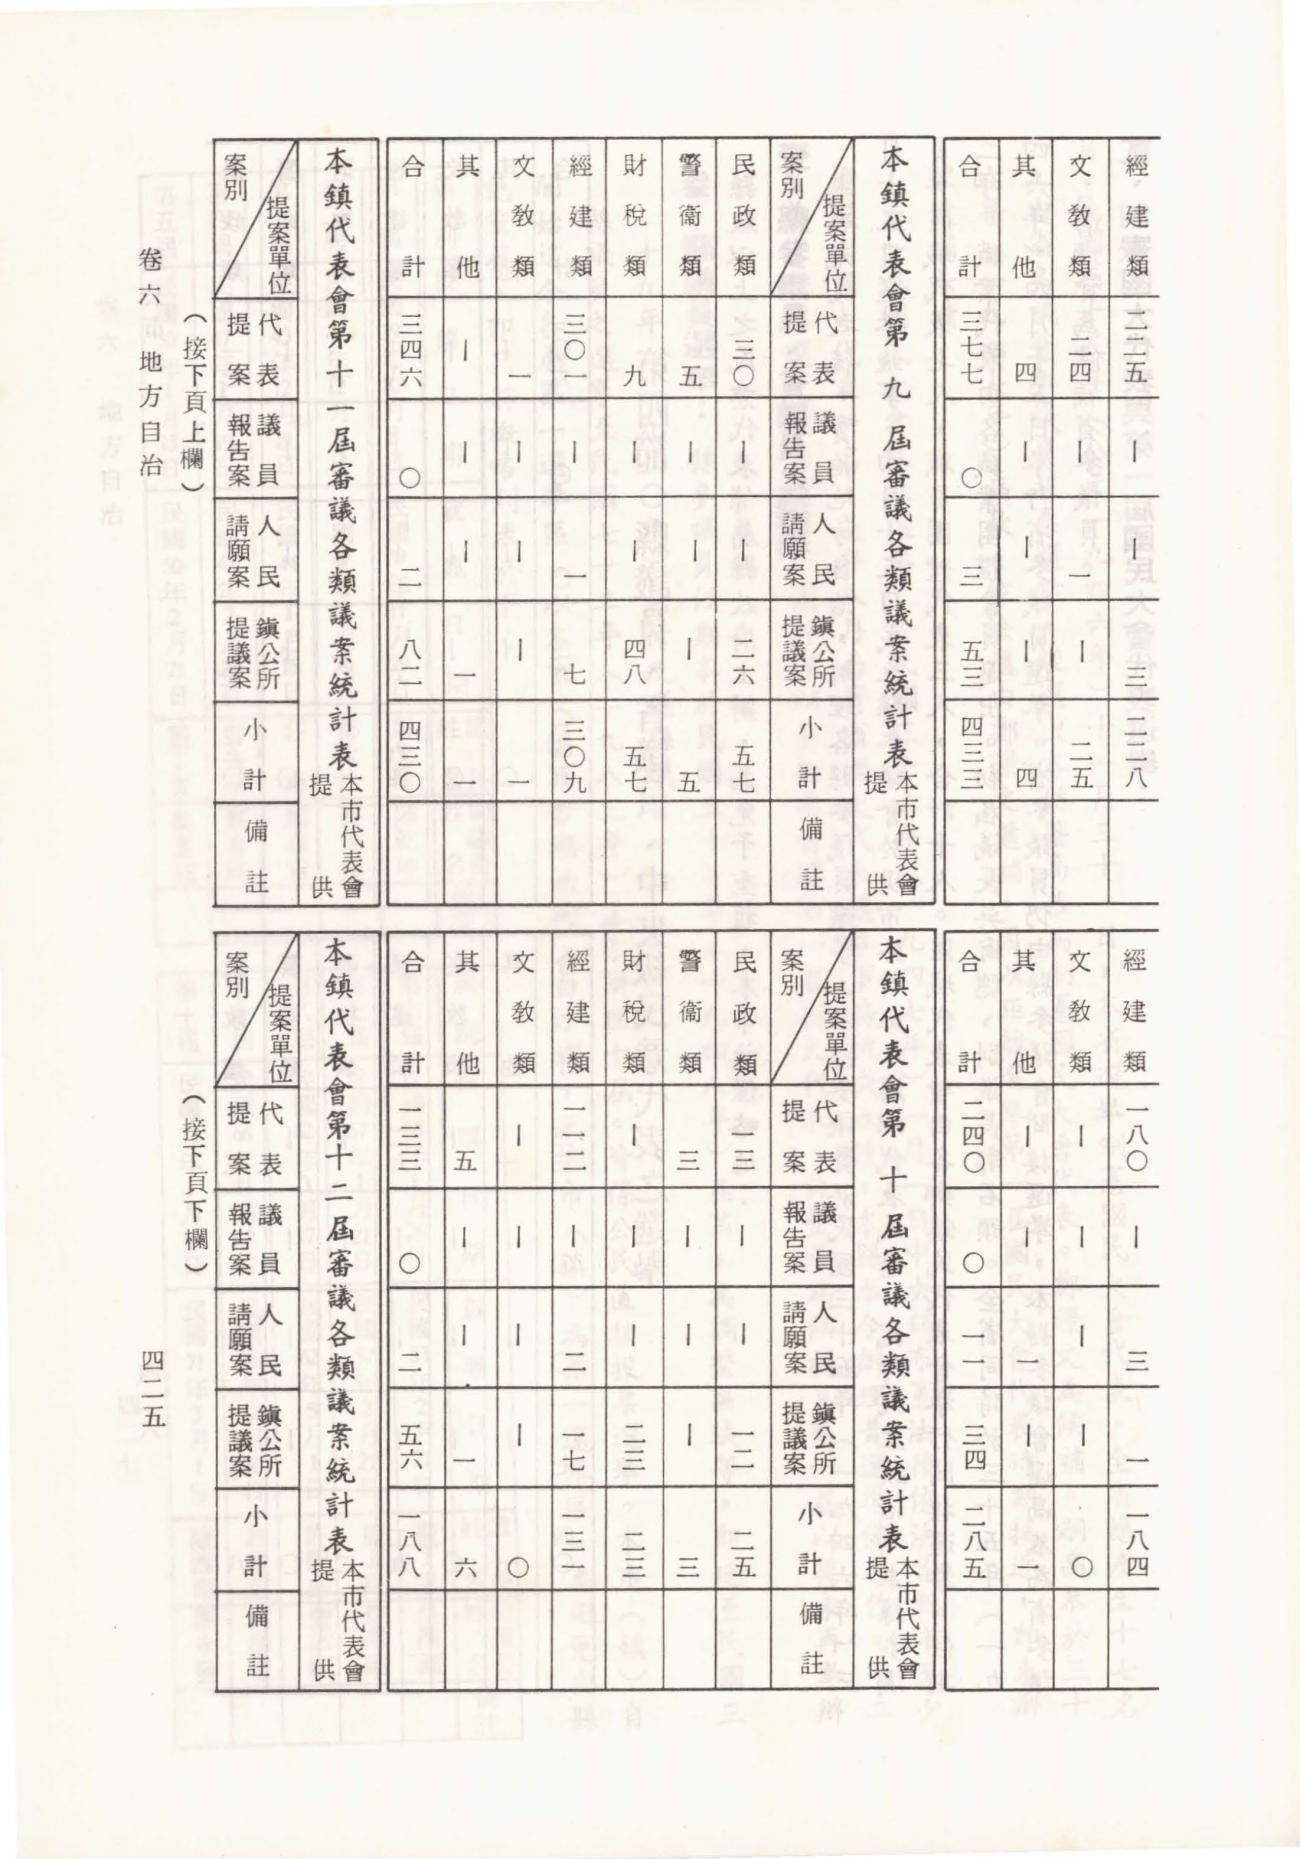 經建類 二二五 — — 三 二二八
文教類 二四 — 一 — 二五
其他 四 — — — 四
合計 三七七 〇 三 五三 四三三
本鎮代表會第九屆審議各類議案統計表 本市代表會提供
案別 提案單位 代表提案 議員報告案 人民請願案 鎮公所提議案 小計 備註
民政類 三〇 — — 二六 五七
警衞類 五 — — — 五
財稅類 九 — 四八 五七
經建類 三〇一 — 一 七 三〇九
文教類 一 — — — 一
其他 — — — 一 一
合計 三四六 〇 二 八二 四三〇
本鎮代表會第十一屆審議各類議案統計表 本市代表會提供
案別 提案單位 代表提案 議員報告案 人民請願案 鎮公所提議案 小計 備註
(接下頁上欄)
經建類 一八〇 — 三 一 一八四
文教類 — — — — 〇
其他 — — 一 — 一
合計 二四〇 〇 一一 三四 二八五
本鎮代表會第十屆審議各類議案統計表 本市代表會提供
案別 提案單位 代表提案 議員報告案 人民請願案 鎮公所提議案 小計 備註
民政類 一三 — — 一二 二五
警衞類 三 — — — 三
財稅類 — — — 二三 二三
經建類 一一二 — 二 一七 一三一
文教類 — — — — 〇
其他 五 — — 一 六
合計 一三三 〇 二 五六 一八八
本鎮代表會第十二屆審議各類議案統計表 本市代表會提供
案別 提案單位 代表提案 議員報告案 人民請願案 鎮公所提議案 小計 備註
(接下頁下欄)
卷六 地方自治
四二五